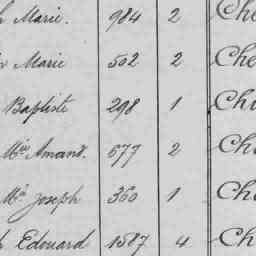 Marie. 984 2 Ch
Marie 502 2 Che
Baptiste 298 1 Ch
Mie Amand. 577 2 Ch
Ma Joseph 360 1 Ch
Edouard 1587 4 Ch